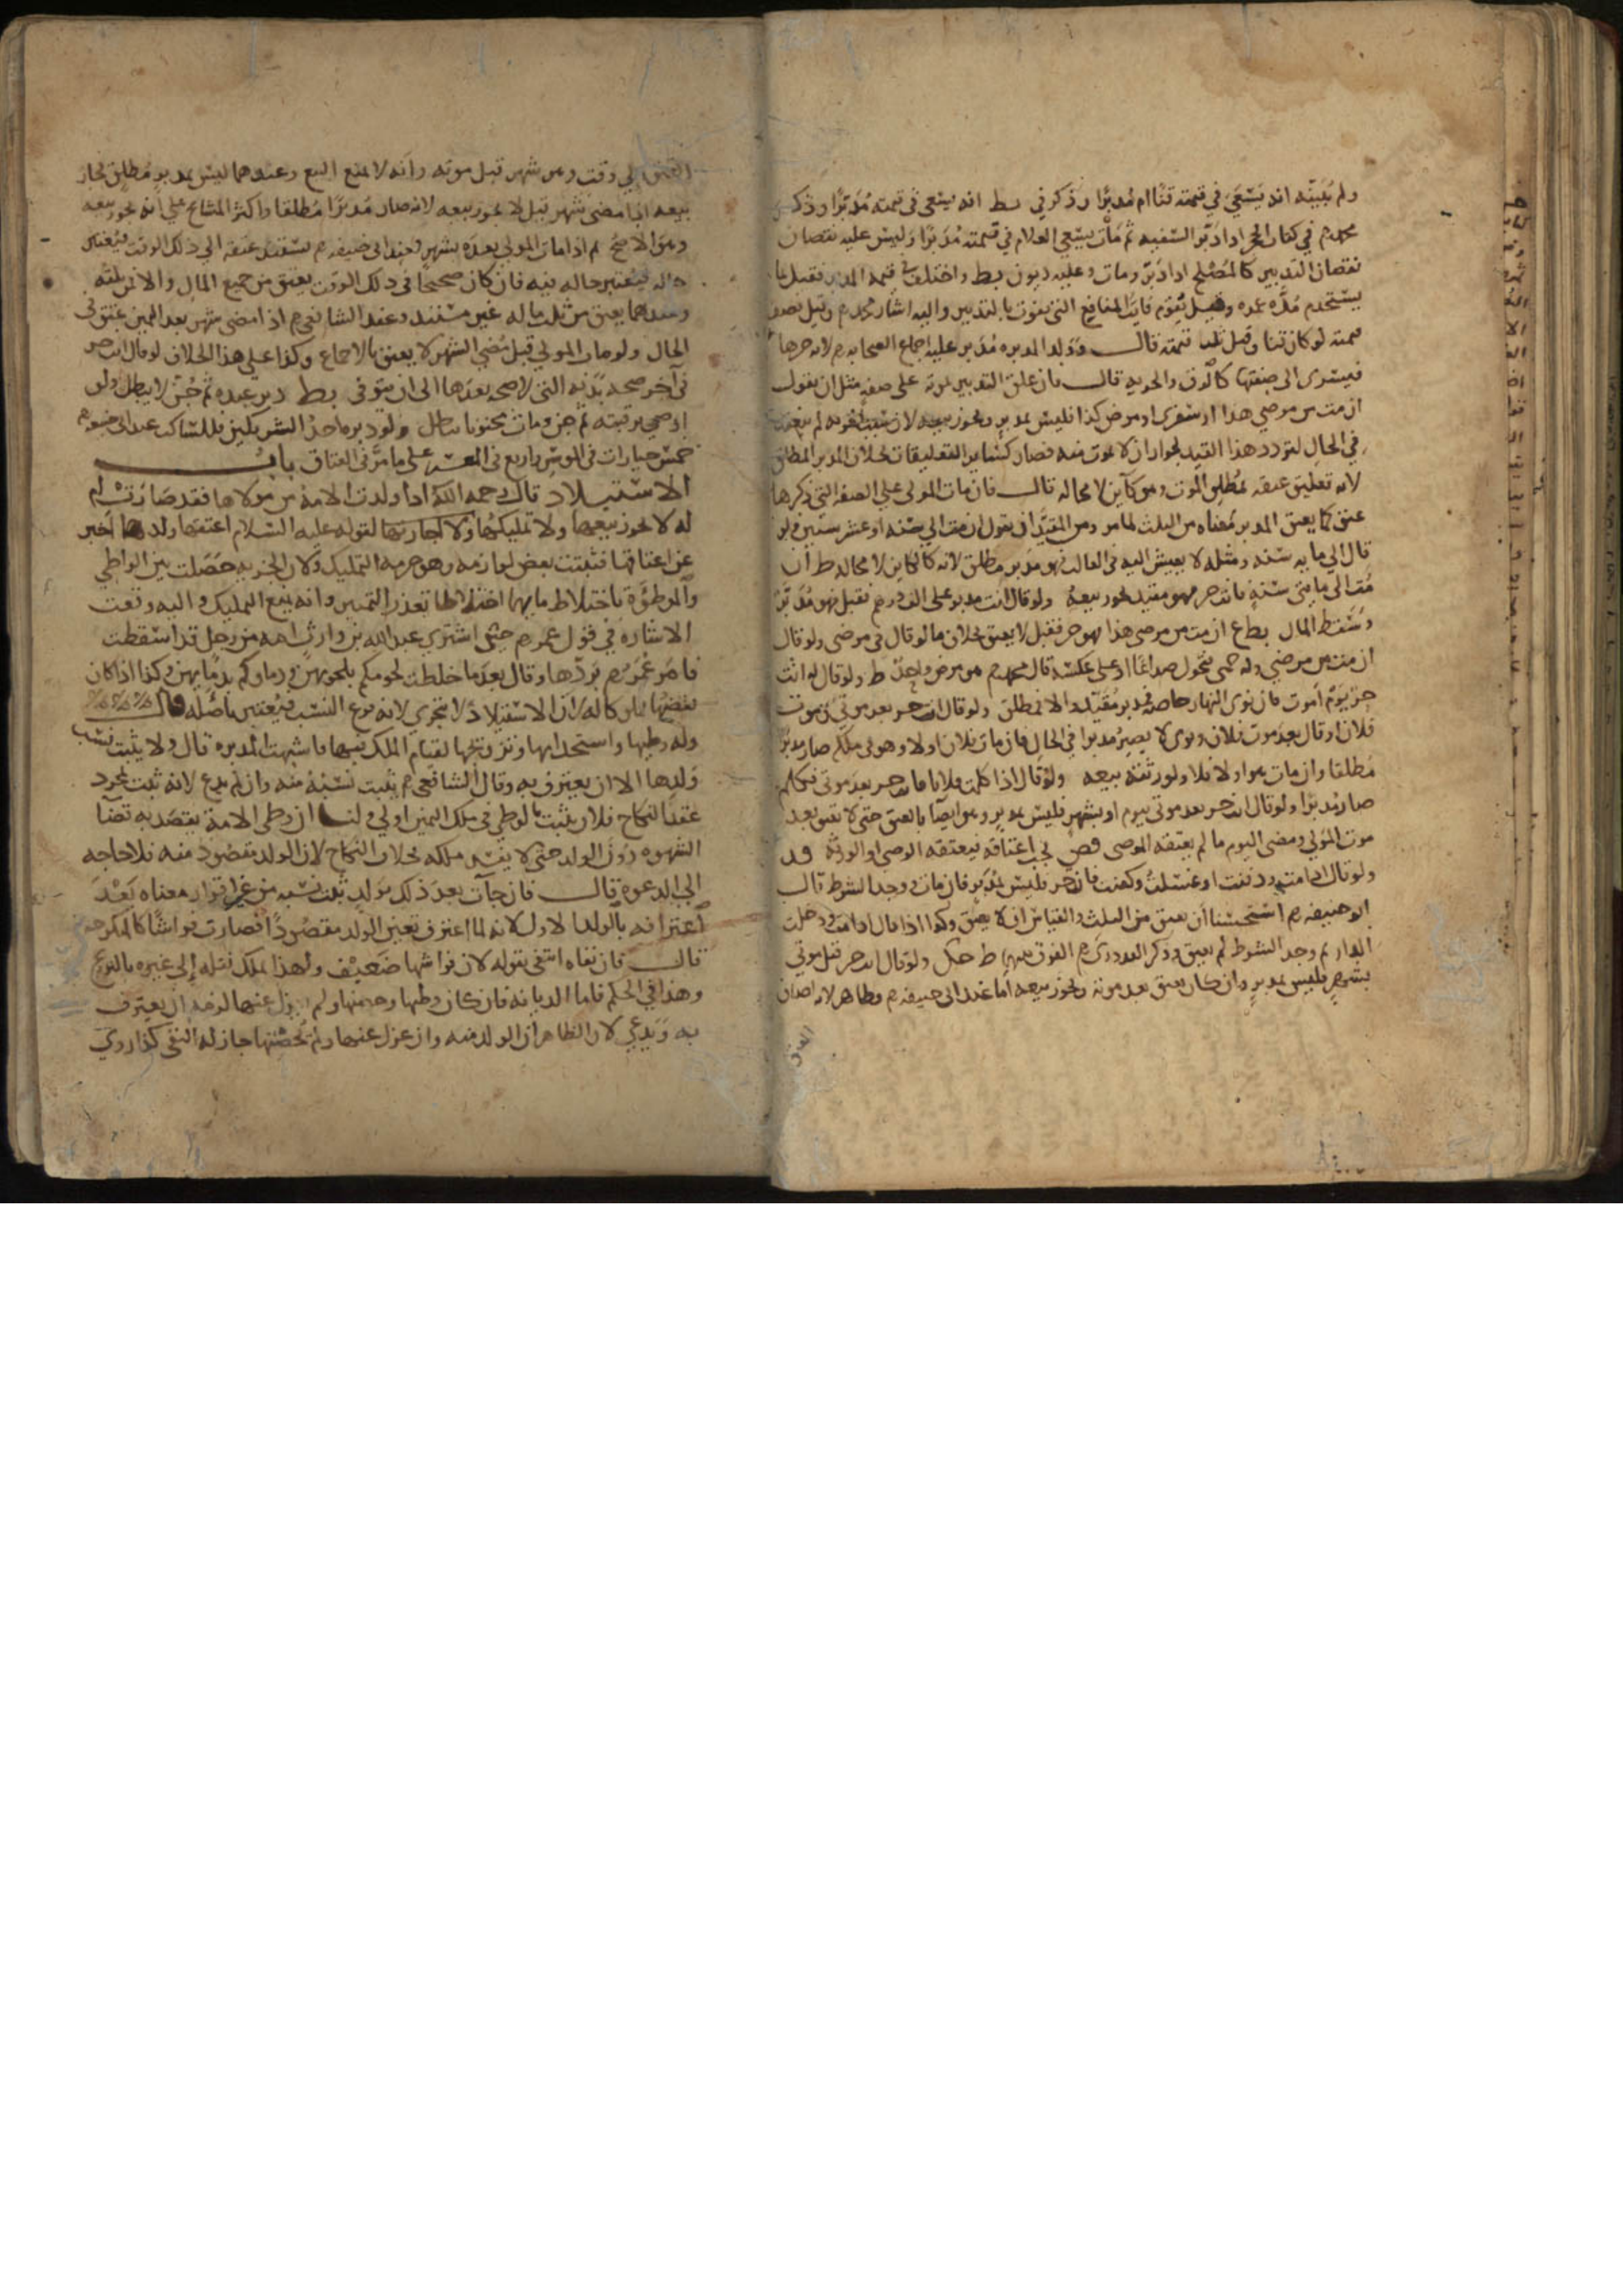 ولم يبينه انه يسعى في قيمته قنا ام مدبرا وذكر في بط انه يسعى في قيمته مدبرا وذكر
محمد رحم في كتاب الحجر اذا دبر السفيه ثم مات يسعى الغلام في قيمته مدبرا وليس عليه نقصان
نقصان التدبير كالمصلح اذا دبر ومات وعليه ديون بط واختلف في قيمة المدبر فقيل ما
يستخدم مدة عمره وقيل يقوم فايت المنافع التي تفوت بالتدبير واليه اشار محمد رحم وقيل نصف
قيمته لو كان قنا وقيل ثلثا قيمته قال وولد المدبره مدبر عليه اجماع الصحابه رضم لانه جزها
فيسرى الى صفتها كالرق والحريه قال فان علق التدبير بموته على صفه مثل ان يقول
ان مت من مرضي هذا او سفري او مرض كذا فليس بمدبر ويجوز بيعه لان سبب لم ينعقد
في الحال لتردد هذا القيد لجواز ان لا يموت منه فصار كساير التعليقات بخلاف المدبر المطلق
لانه تعليق عتقه بمطلق الموت وهو كاين لا محاله قال فان مات المولى على الصفه التي ذكرها
عتق كما يعتق المدبر معناه من الثلث لما مر ومن المقيد ان يقول ان مت الى سنه او عشر سنين ولو
قال الى مايه سنه ومثله لا يعيش اليه في الغالب فهو مدبر مطلق لانه كالكاين لا محاله ط ان
مت الى مايتي سنة فانت حر فهو مقيد يجوز بيعه ولو قال انت مدبر على الف درهم فقبل فهو مدبر
وسقط المال بط ع ان مت من مرضي هذا فهو حر فقتل لا يعتق بخلاف ما لو قال في مرضي ولو قال
ان مت من مرضي وله حمى فتحول صداعا او على عكسه قال محمد رحم هو مرض واحد ط ولو قال له انت
حر يوم اموت فان نوى النهار خاصه فمدبر مقيد والا فمطلق ولو قال انت حر بعد موتي وموت
فلان او قال بعد موت فلان وموتي لا يصير مدبرا في الحال فان مات فلان اولا وهو في ملكه صار مدبرا
مطلقا وان مات هو اولا فلا ولورثته بيعه ولو قال اذا كلمت فلانا فانت حر بعد موتي فكلم
صار مدبرا ولو قال انت حر بعد موتي بيوم او بشهر فليس بمدبر وهو ايصا بالعتق حتى لا يعتق بعد
موت المولى ومضى اليوم ما لم يعتقه الموصى يجب اعتاقه فيعتقه الوصي او الورثة
ولو قال اذا مت ودفنت او غسلت وكفنت فانت حر فليس بمدبر فان مات ووجد الشرط قال
ابو حنيفه رحم استحسنا ان يعتق من الثلث والقياس ان لا يعتق وكذا اذا قال اذا مت ودخلت
الدار ثم وجد الشرط لم يعتق وذكر القدوري رحم الفرق بينهما ط ولو قال انت حر قبل موتي
بشهر فليس بمدبر وان كان يعتق بعد موته ويجوز بيعه اما عند ابى حنيفه رحم فظاهر لانه اضاف
العتق
العتق الى وقت وهو شهر قبل موته وانه لا يمنع البيع وعندهما ليس بمدبر مطلق فجاز
بيعه اذا مضى شهر قيل لا يجوز بيعه لانه صار مدبرا مطلقا واكثر المشايخ على انه يجوز بيعه
وهو الاصح ثم اذا مات المولى بعده بشهر فعند ابى حنيفه رحم يستند عتقه الى ذلك الوقت فيعتبر
حاله فيه فان كان صحيحا في ذلك الوقت يعتق من جميع المال والا فمن ثلثه
وعندهما يعتق من ثلث ماله غير مستند وعند الشافعي رحم اذا مضى شهر بعد اليمين عتق في
الحال ولو مات المولى قبل مضي الشهر لا يعتق بالاجماع وكذا على هذا الخلاف لو قال انت حر
في آخر صحه بدنه التي لا صحه بعدها الى ان يتوفى بط دبر عبده ثم جن لا يبطل ولو
اوصى برقبته ثم جن ومات مجنونا بطل ولو دبره احد الشريكين فللساكت عند ابى حنيفه رحم
خمس خيارات في الموسر واربع في المعسر على ما مر في العتاق باب
الاستيلاد قال رحمه الله اذا ولدت الامة من مولاها فقد صارت ام
له لا يجوز بيعها ولا تمليكها ولا اجارتها لقوله عليه السلام اعتقها ولدها اخبر
عن اعتاقها فثبتت بعض لوازمه وهو حرمه التمليك ولان الجزييه حصلت بين الواطي
والموطؤة باختلاط مايهما اختلاطا تعذر التمييز وانه يمنع التمليك واليه وقعت
الاشاره في قول عمر رضم حتى اشترى عبد الله بن وارث امه من رجل قد اسقطت
فامر عمر رضم بردها وقال بعد ما خلطت لحومكم بلحومهن ودماوكم بدمايهن وكذا اذا كان
بعضها مملوكا له لان الاستيلاد لا يتجزى لانه فرع النسب فيعتبر باصله قال
وله وطيها واستخدامها وتزويجها لقيام الملك فيها فاشبهت المدبره قال ولا يثبت نسب
ولدها الا ان يعترف به وقال الشافعي رحم يثبت نسبه منه وان لم يدع لانه ثبت بمجرد
عقد النكاح فلان يثبت بالوطي في ملك اليمين اولى ولنا ان وطي الامة يقصد به قضا
الشهوه دون الولد حتى لا يفسد ملكه بخلاف النكاح لان الولد مقصود منه فلا حاجه
الى الدعوه قال فان جآت بعد ذلك بولد ثبت نسبه من غير اقرار معناه بعد
اعترافه بالولد الاول لانه لما اعترف تعين الولد مقصودا فصارت فراشا كالمنكوحه
قال فان نفاه انتفى بقوله لان فراشها ضعيف ولهذا يملك نقله الى غيره بالتزويج
وهذا في الحكم فاما الديانه فان كان وطيها وحصنها ولم يعزل عنها لزمه ان يعترف
به ويدعي لان الظاهر ان الولد منه وان عزل عنها ولم يحصنها جاز له النفي كذا روي